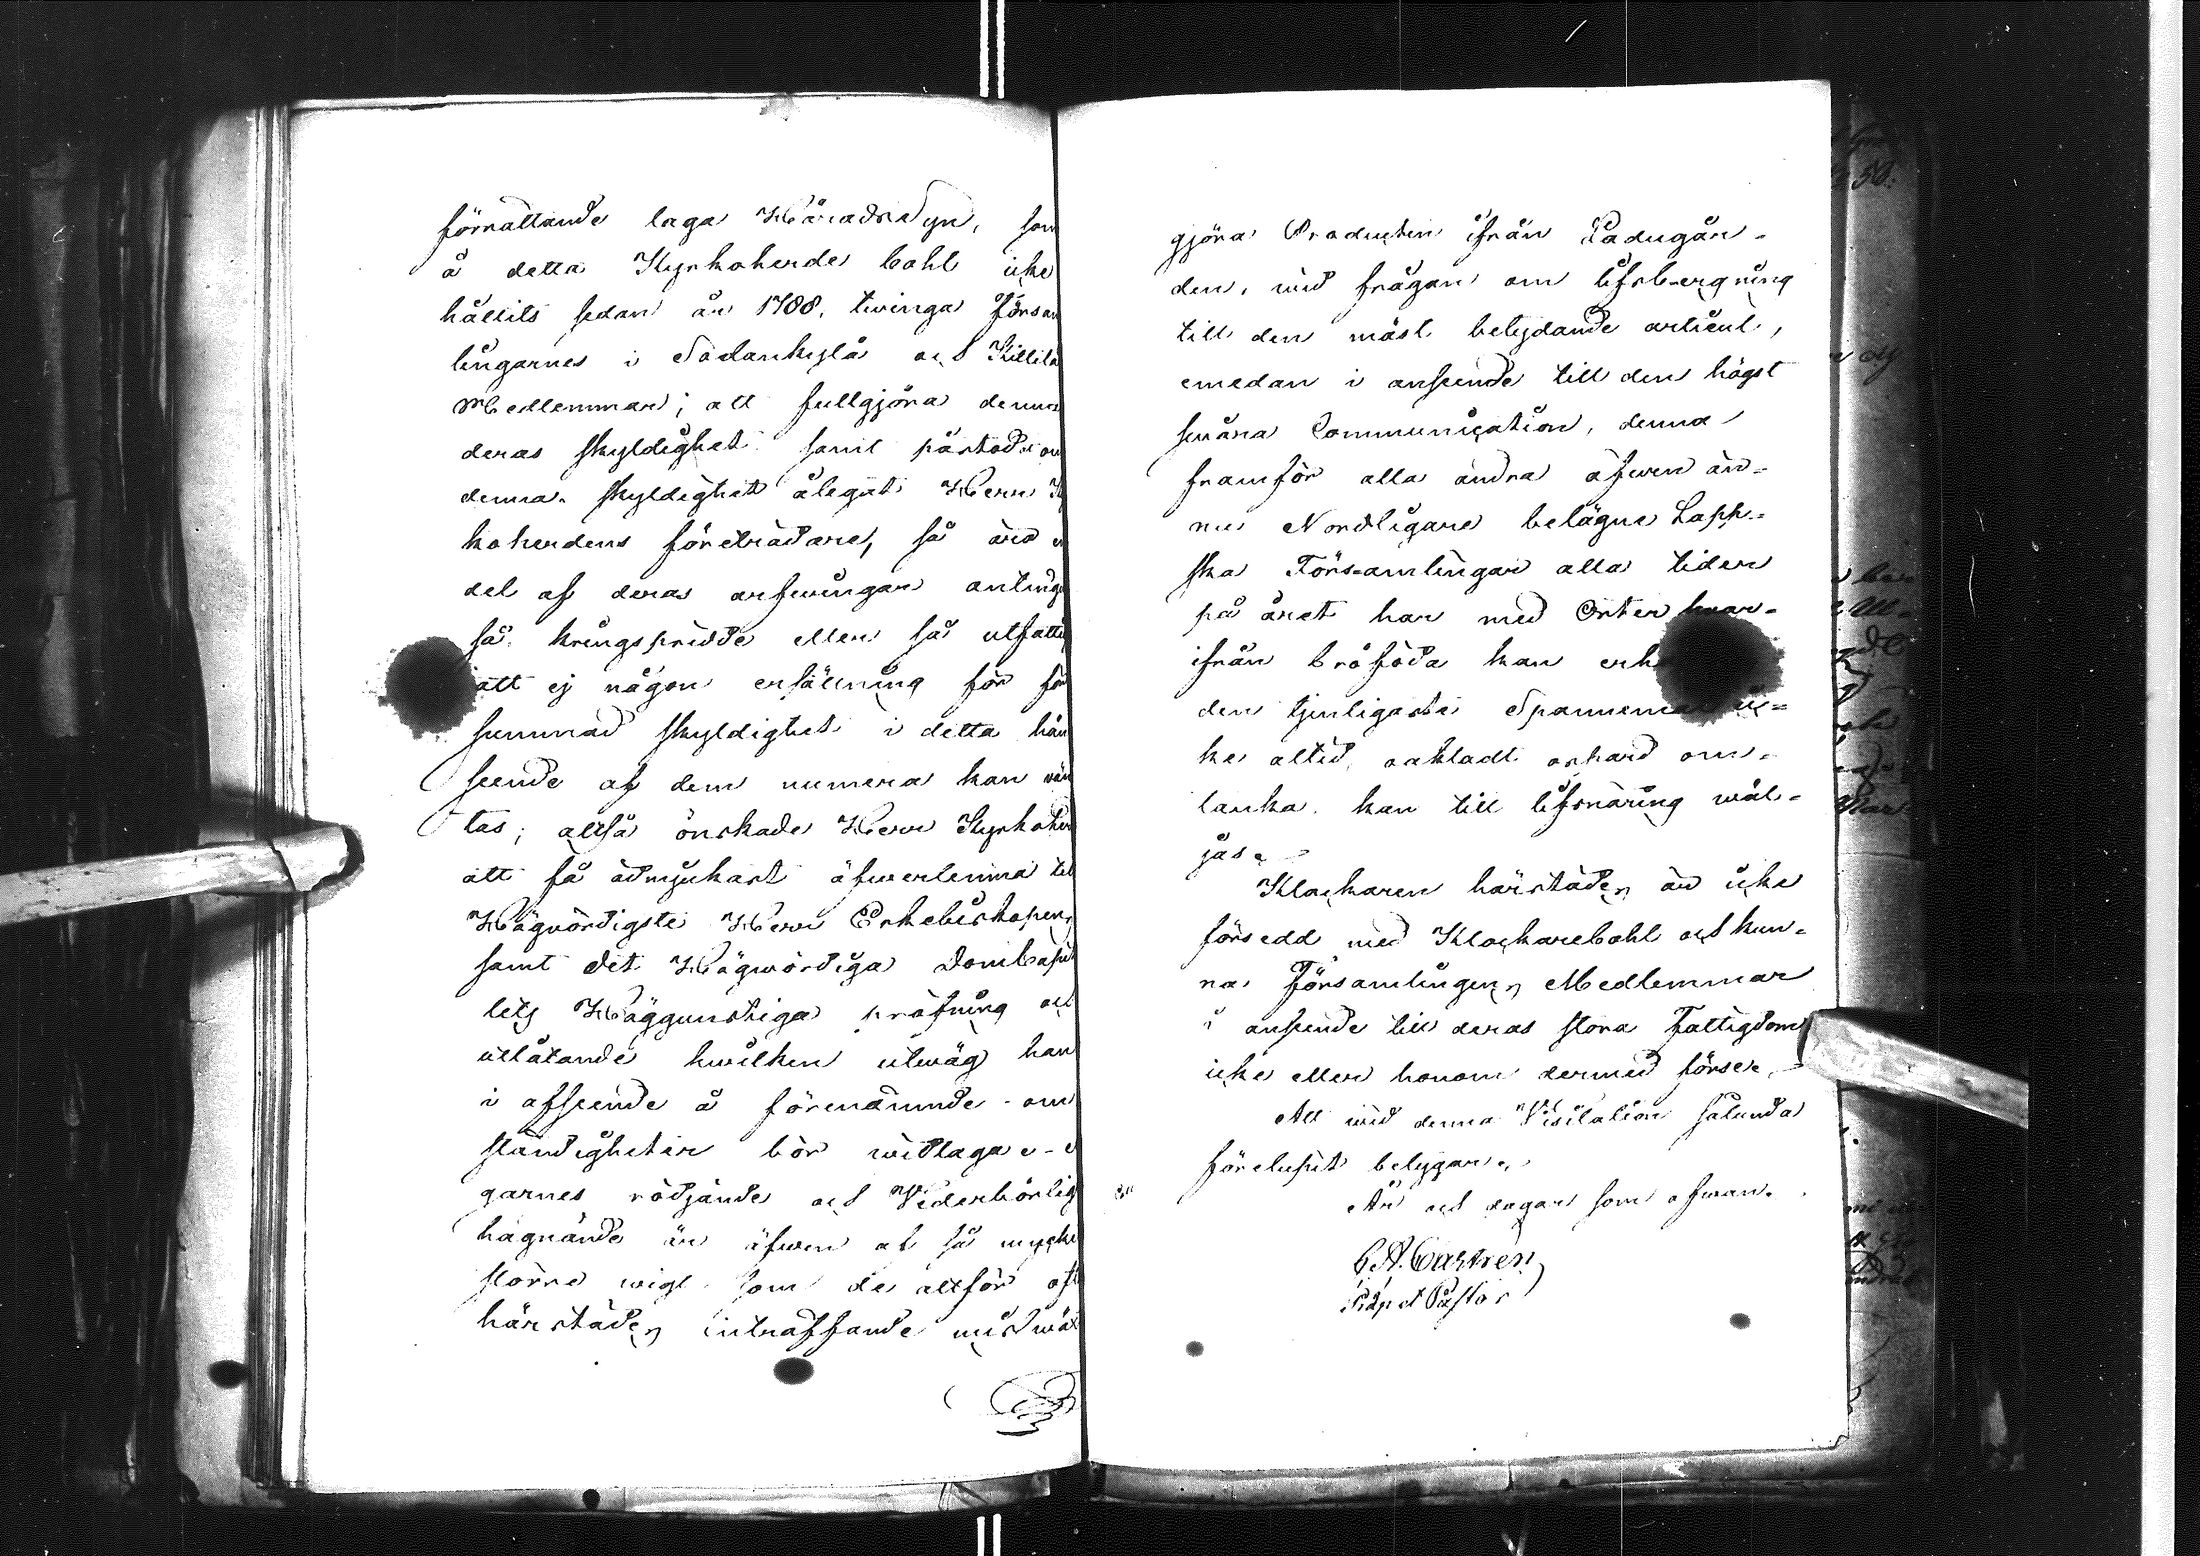 förrättande laga HäradsSyn, som
å detta Kyrkoherde bohl icke
hållits sedan år 1788, twinga försam
lingarnes i Sodankylä och Kittilä
Medlemmar; att fullgjöra denna
deras skyldighet samt påstod om
denna skyldighet ålegat Herr K
koherdens företrädare, så äro e
del af deras arfwingar antinge
så kringspridde eller så utfatti
att ej någon ersättning för för
summad skyldighet i detta hän
seende af dem numera kan vän
tas; altså önskade Herr Kyrkoher
att få ödmjukast öfwerlemna till
Högvördigste Herr Erkebiskopen,
samt det Högwördiga Domkapit
lets Höggunstiga pröfning och
utlåtande hwilken utwäg han
i afseende å förenämnde om
ständigheter bör widtaga
garnes rödjande och Vederbörlig
hägnande är äfwen af så mycke
större wigt som de altför oft
härstädes inträffande misswäx
gjöra Producten ifrån Ladugår-
den, wid frågan om lifsbergning
till den mäst betydande articul,
emedan i anseende till den högst
swåra Communication, denna
framför alla andra äfwen än-
nu Nordligare belägne Lapp-
ska Församlingar alla tider
på året har med Orter hwar-
ifrån brödföda kan erh
den tjenligaste Spannemål ic-
ke altid, oaktadt osparad om-
tanka kan till lifsnäring wäl-
jas.
Klockaren härstädes är icke
försedd med Klockarebohl och kun-
na Församlingens Medlemmar
i anseende till deras stora Fattigdom
icke eller honom dermed förse.
Att wid denna Visitation sålunda
förelupit betygar,
År och dagar som ofwan.
C A. Castrén
Pastor